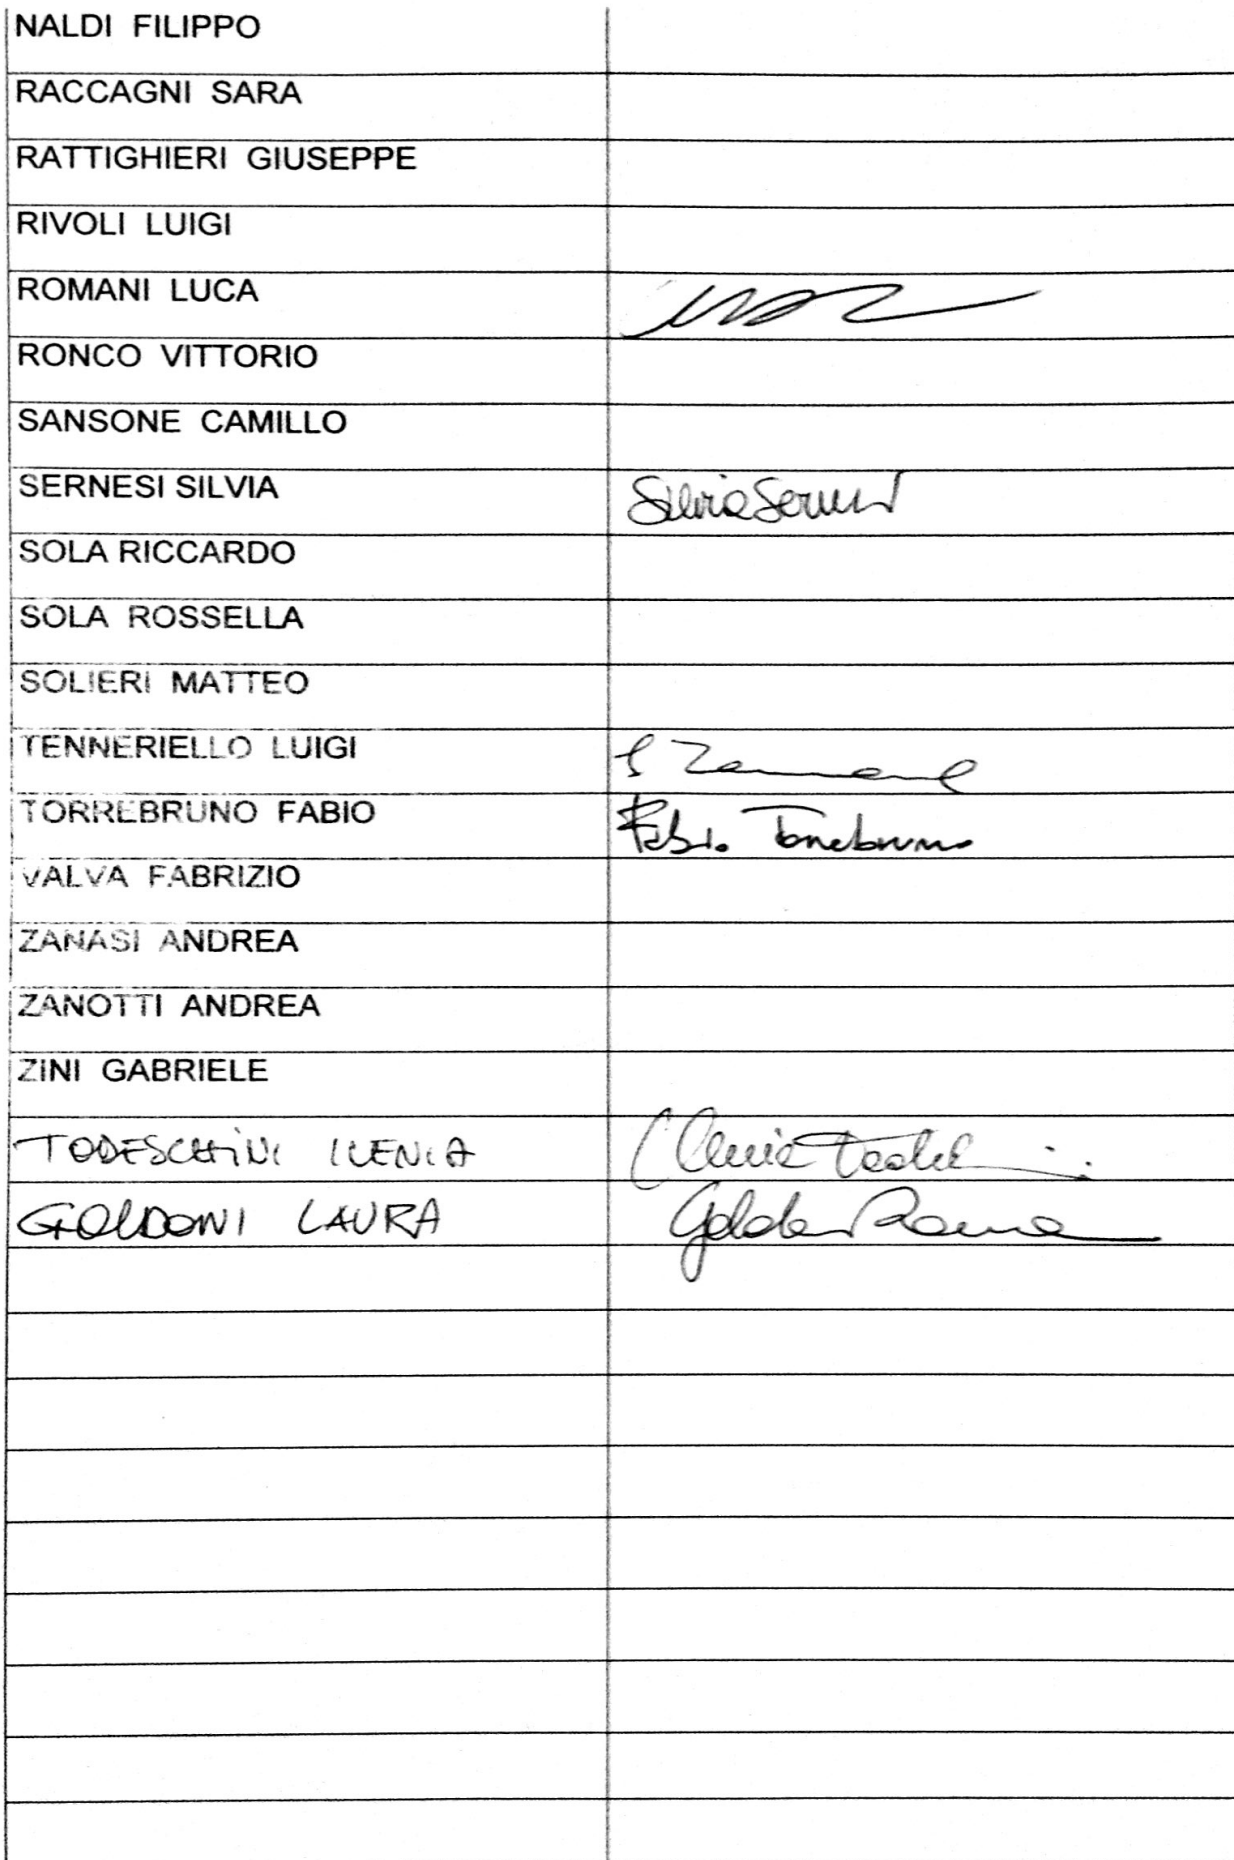 NALDI FILIPPO
RACCAGNI SARA
RATTIGHIERI GIUSEPPE
RIVOLI LUIGI
ROMANI LUCA
RONCO VITTORIO
SANSONE CAMILLO
SERNESI SILVIA Silvia Sernesi
SOLA RICCARDO
SOLA ROSSELLA
SOLIERI MATTEO
TENNERIELLO LUIGI
TORREBRUNO FABIO Fabio Torrebruno
VALVA FABRIZIO
ZANASI ANDREA
ZANOTTI ANDREA
ZINI GABRIELE
TODESCHINI ILENIA
GOLDONI LAURA